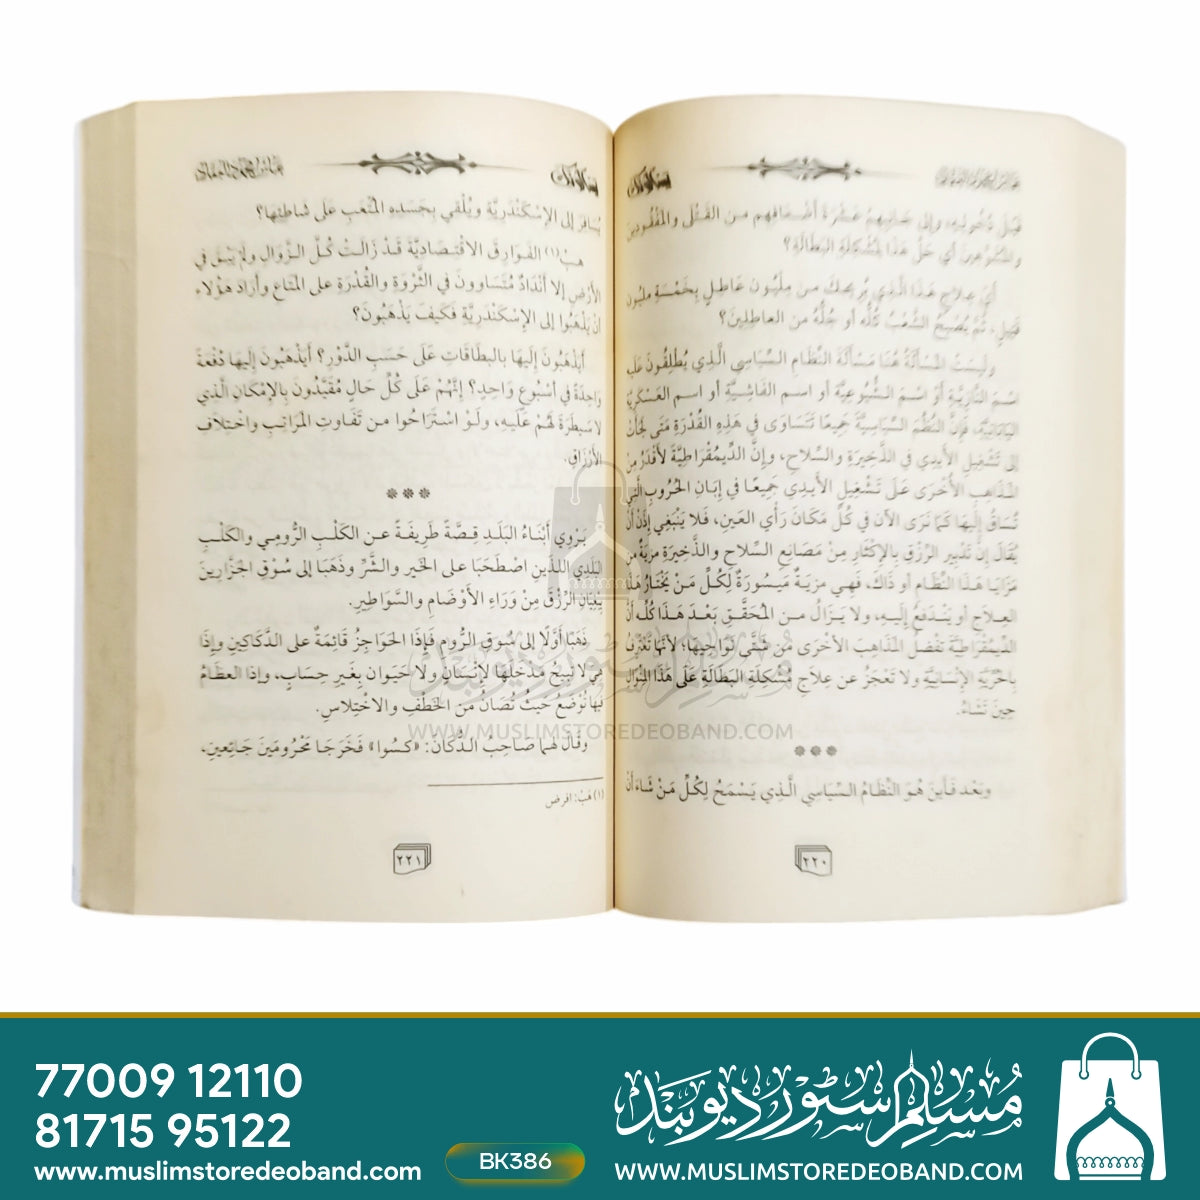 قَبْلَ دُخُولِهِ، وإلى جَانِبِهِمْ عَشَرَةُ أَضْعَافِهِم من القَتْلَى والمَفْقُودِينَ
والمُشَوَّهِينَ أي حَلٍّ هَذَا لِمُشْكِلَةِ البَطَالَةِ؟
أيُّ عِلاجٍ هَذَا الَّذِي يُرِيحُكَ مِن مِلْيُون عَاطِلٍ بِخَمْسَةِ مليُون
قَتِيلٍ، ثُمَّ يُصْبِحُ الشَّعْبُ كُلُّه أو جُلُّه من العاطِلِينَ؟
وليسَتْ المسألَةُ هُنَا مَسْأَلَةَ النِّظَامِ السِّيَاسِي الَّذِي يُطْلِقُونَ عَلَيهِ
اسْمَ النَّازِيَّةِ أَوْ اسْمَ الشُّيُوعِيَّةِ أو اسم الفَاشِيَّةِ أو اسم العَسْكَرِيَّةِ
اليَابَانِيَّةِ، فَإِنَّ النُّظُمَ السِّيَاسِيَّةَ جَمِيعًا تَتَسَاوَى في هَذِهِ القُدْرَةِ مَتَى لَجَأَتْ
إلى تَشْغِيلِ الأيدِي في الذَّخِيرَةِ والسِّلاحِ، وإنَّ الدِّيمُقْرَاطِيَّةَ لأَقْدَرُ مِنَ
المَذَاهِبِ الأُخْرَى عَلَى تَشْغِيلِ الأَيدِي جَمِيعًا في إِبَانِ الحُرُوبِ الَّتِي
تُسَاقُ إِلَيهَا كَمَا نَرَى الآن في كُلِّ مَكَان رَأي العَينِ، فَلا يَنْبَغِي إِذَنْ أَنْ
يُقَالَ إِنَّ تَدْبِيرَ الرِّزْقِ بِالإكْثَارِ مِنْ مَصَانِعِ السِّلاحِ والذَّخِيرَةِ مَزِيَّةٌ من
مَزَايَا هَذَا النِّظَامِ أو ذَاكَ، فَهِي مَزِيَةٌ مَيسُورَةٌ لِكُلِّ مَنْ يَخْتَارُ هَذَا
العِلاجَ أو يَنْدَفِعُ إِلَيهِ، ولا يَزَالُ من المُحَقَّقِ بَعْدَ هَذَا كُلِّهِ أَنَّ
الدِّيمُقْرَاطِيَّةَ تَفْضُلُ المَذَاهِبَ الأخرَى مِن شَتَّى نَوَاحِيهَا؛ لأنَّهَا تَعْتَرِفُ
بِالحُرِّيَّةِ الإِنْسَانِيَّةِ ولا تَعْجَزُ عن عِلاجِ مُشْكِلَةِ البَطَالَةِ عَلَى هَذَا المِنْوَالِ
حِينَ تَشَاءُ.
***
وبَعْد فَأَينَ هُوَ النِّظَامُ السِّيَاسِي الَّذِي يَسْمَحُ لِكُلِّ مَنْ شَاءَ أَنْ
٢٢٠
يُسَافِرَ إلى الإِسْكَنْدَرِيَّة ويُلْقي بِجَسَدِهِ المُتْعَبِ عَلَى شَاطِئِهَا؟
هَبْ(١) الفَوَارِقَ الاقْتِصَادِيَّةَ قَدْ زَالَتْ كُلَّ الزَّوَالِ ولَمْ يَبْقَ في
الأرْضِ إلا أَنْدَادٌ مُتَسَاوونَ في الثَّرْوَةِ والقُدْرَةِ على المَتَاعِ وأَرَادَ هَؤُلاءِ
أَنْ يَذْهَبُوا إلى الإِسْكَنْدَرِيَّةِ فَكَيفَ يَذْهَبُونَ؟
أَيَذْهَبُونَ إِلَيهَا بالبطَاقَاتِ عَلَى حَسَبِ الدَّوْرِ؟ أَيَذْهَبُونَ إِليهَا دُفْعَةً
وَاحِدَةً في أُسْبُوعٍ وَاحِدٍ؟ إِنَّهُمْ عَلَى كُلِّ حَالٍ مُقَيَّدُونَ بِالإِمْكَانِ الَّذِي
لا سَيطَرَةَ لَهُمْ عَلَيهِ، ولَوْ اسْتَرَاحُوا من تَفَاوتِ المَرَاتِبِ واخْتِلافِ
الأَرْزَاقِ.
***
يَرْوِي أَبْنَاءُ البَلَدِ قِصَّةً طَرِيفَةً عن الكَلْبِ الرُّومِي والكَلْبِ
البَلَدِي اللذَينِ اصْطَحَبَا على الخَيرِ والشَّرِّ وذَهَبَا إلى سُوقِ الجَزَّارِينَ
يَبْغِيَانِ الرِّزْقَ مِنْ وَرَاءِ الأَوْضَامِ والسَّوَاطِيرِ.
ذَهَبَا أَوَّلًا إلى سُوقِ الرُّومِ فَإِذَا الحَوَاجِزُ قَائِمَةٌ على الدَّكَاكِينِ وإِذَا
هِيَ لا تُبِيحُ مَدْخَلَهَا لإنْسَانٍ ولا حَيَوان بِغَيرِ حِسَابٍ، وإذا العظَامُ
بِهَا تُوضَعُ حَيثُ تُصَانُ مِنَ الخَطْفِ والاخْتِلاسِ.
وقَالَ لهما صَاحِبُ الدُّكَانِ: «كسُوا» فَخَرَجَا مَحْرُومَينَ جَائِعِينِ،
(١) هَبْ: افرض
٢٢١
مُسلِم سٹور دیوبَند
WWW.MUSLIMSTOREDEOBAND.COM
77009 12110
81715 95122
www.muslimstoredeoband.com
BK386
مُسلِم سٹور دیوبَند
WWW.MUSLIMSTOREDEOBAND.COM